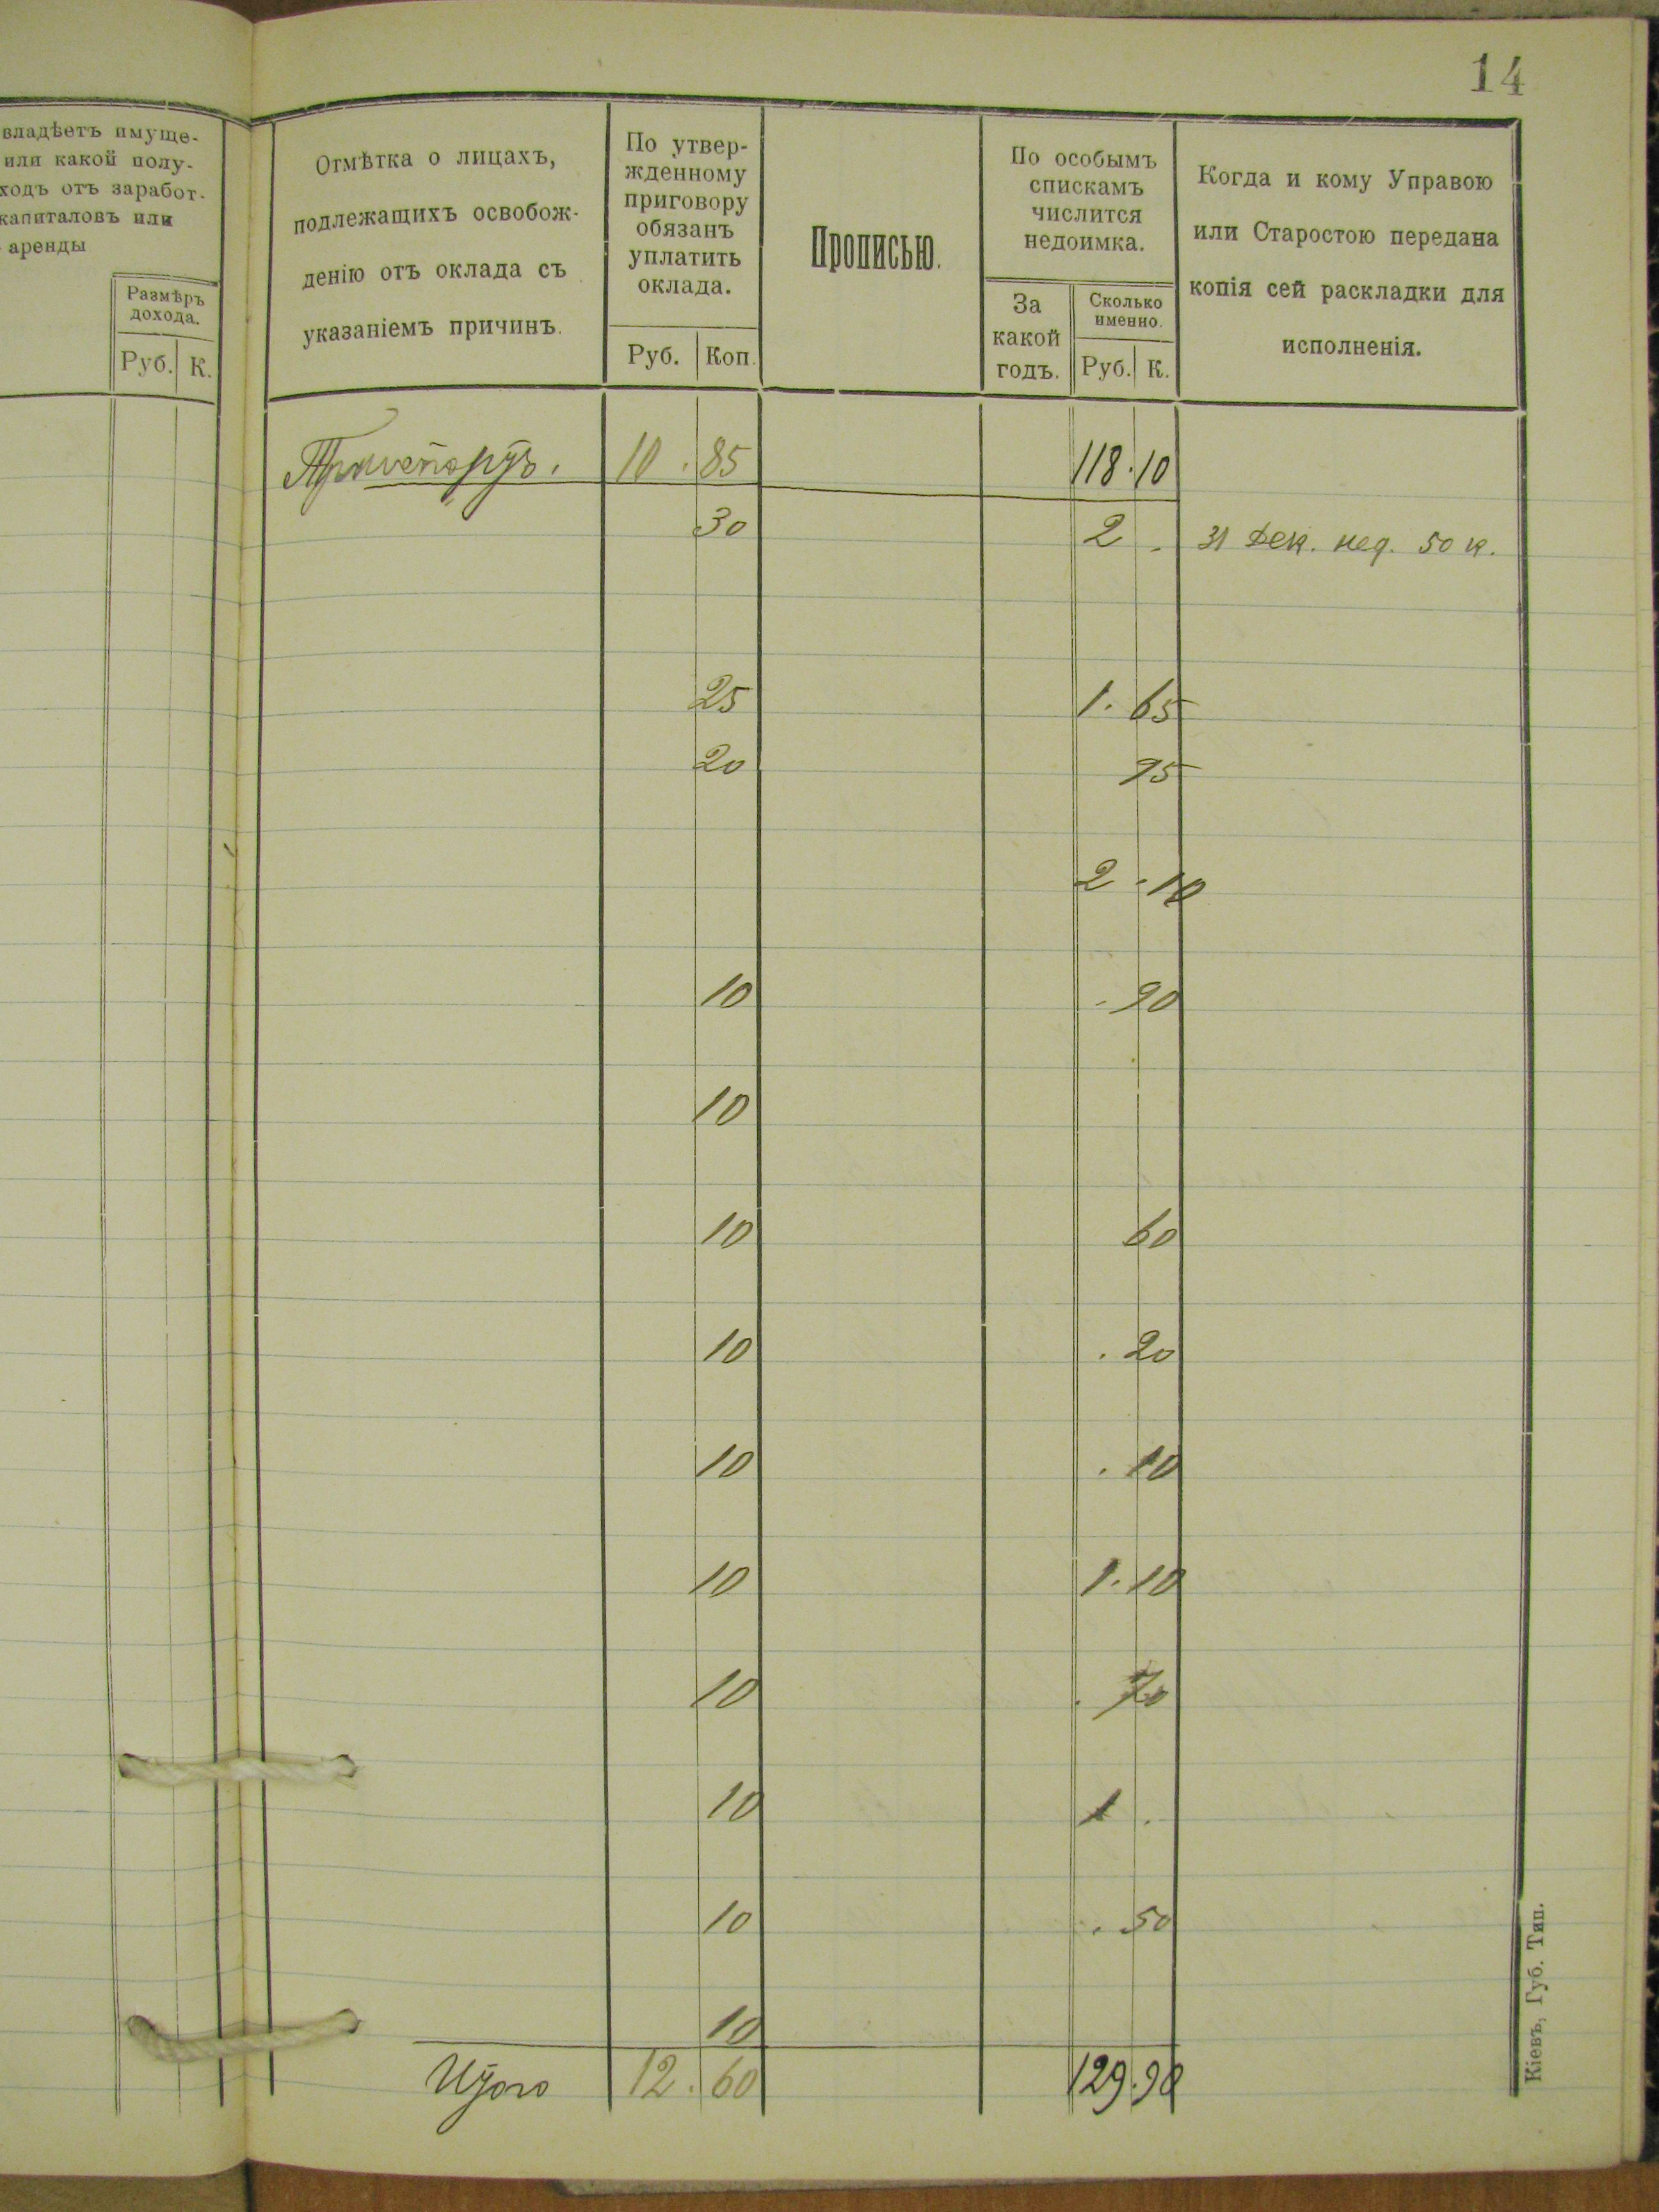 14
владѣетъ имуще-
или какой полу-
ходъ отъ заработ-
капиталовъ или
аренды
Размѣръ
дохода.
Руб. К.
Отмѣтка о лицахъ,
подлежащихъ освобож-
денію отъ оклада съ
указаніемъ причинъ.
По утвер-
жденному
приговору
обязанъ
уплатить
оклада.
Руб. Коп.
Прописью.
По особымъ
спискамъ
числится
недоимка.
За
какой
годъ.
Сколько
именно.
Руб. К.
Когда и кому Управою
или Старостою передана
копія сей раскладки для
исполненія.
10 . 85 118 . 10
30 2 . 31 Дек. нед. 50 к.
25 1 . 65
20 95
2 . 10
10 . 90
10
10 60
10 . 20
10 . 10
10 1 . 10
10 . 70
10 1 .
10 . 50
10
Итого 12 . 60 129 . 90
Кіевъ, Губ. Тип.